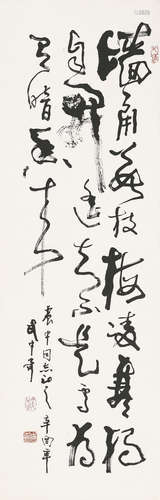 墙角数枝梅凌寒独
自开遥知不是雪为
有暗香来
震中同志正之 辛酉年